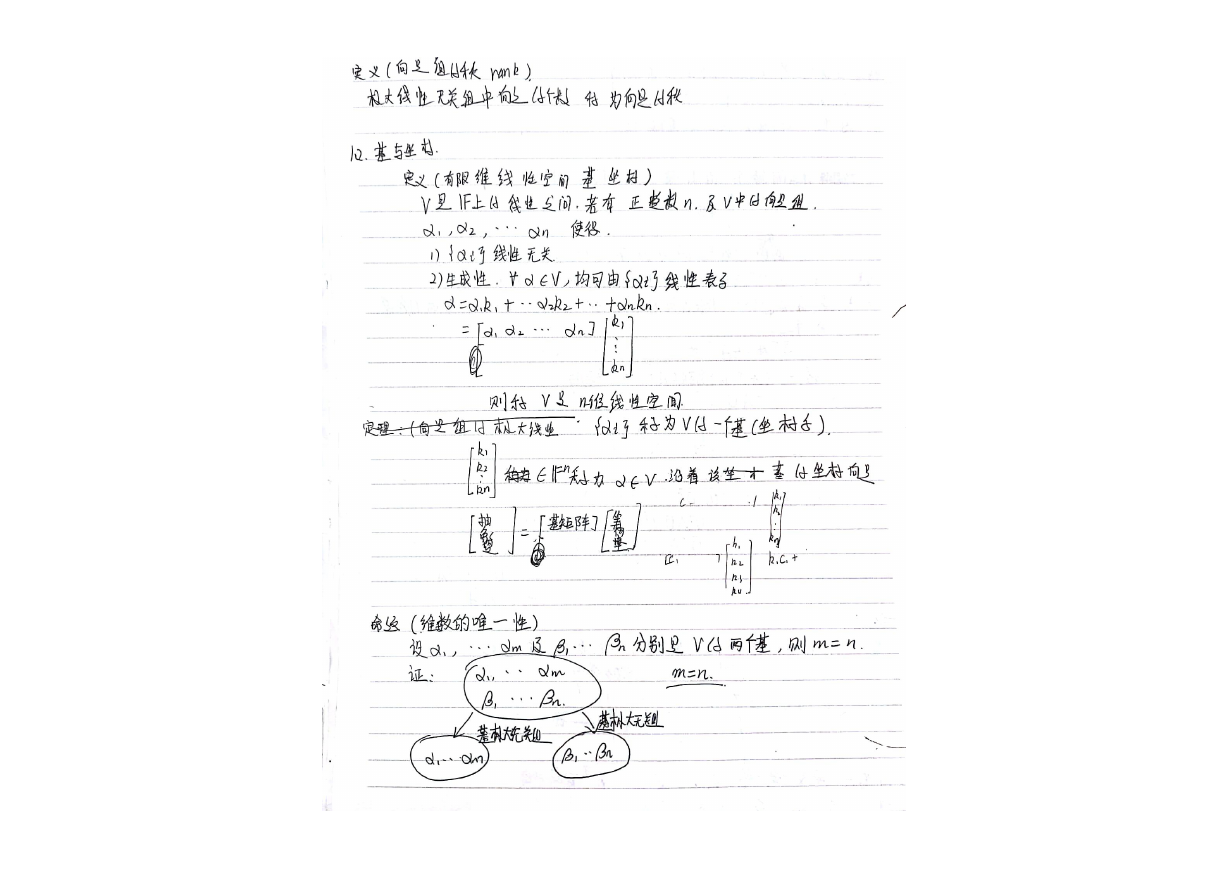 定义(向量组的秩 rank).
极大线性无关组中向量的个数 称为向量的秩
12. 基与坐标.
定义(有限维线性空间 基 坐标)
V是F上的线性空间. 若有 正整数n. 及V中的向量组.
α₁, α₂, ⋯ αn 使得.
1) {αi} 线性无关
2) 生成性. ∀ α∈V, 均可由{αi} 线性表示
α=α₁k₁+⋯α₂k₂+⋯+αnkn.
= [α₁ α₂ ⋯ αn] [k₁ ⋮ kn]
则称 V是 n维线性空间
定理:(向量组的 极大线性 . {αi} 称为V的一个基(坐标系).
[k₁ k₂ ⋮ kn] ∈ Fⁿ 称为 α∈V 沿着 该坐 基的坐标向量
[抽象 ] = [基矩阵] [ ]
[k₁ k₂ ⋮ kn]
[k₁ k₂ k₃ ] k₁c₁+
命题 (维数的唯一性)
设α₁, ⋯ αm 及 β₁ ⋯ βn 分别是 V的 两个基, 则 m=n.
证: α₁, ⋯ αm m=n.
β₁ ⋯ βn.
基极大无关组 基极大无关组
α₁ ⋯ αm β₁ ⋯ βn